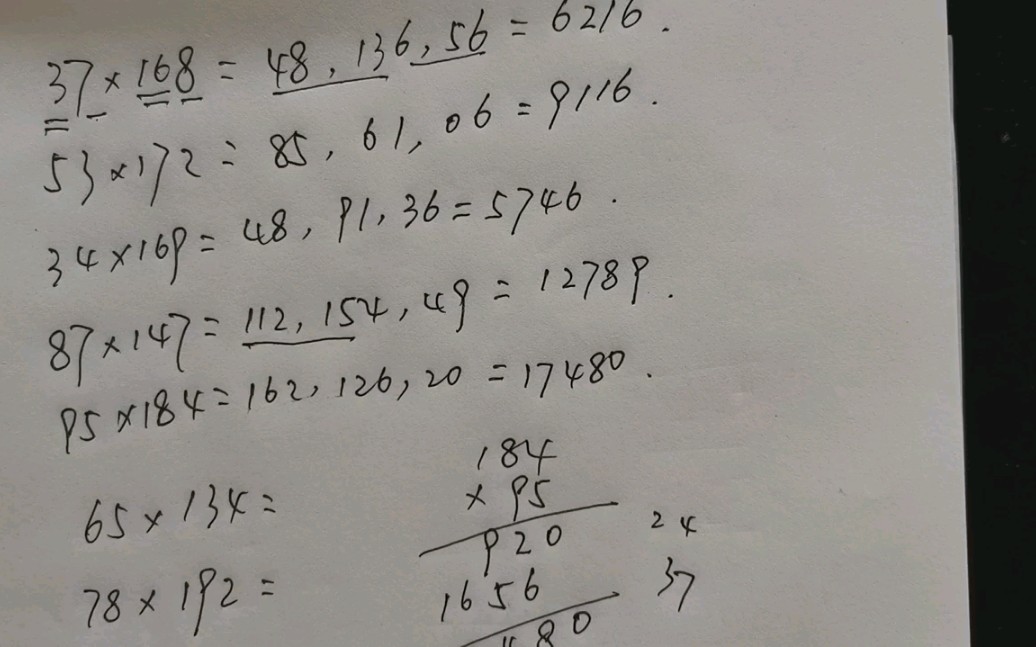 37×168=48,136,56=6216.
53×172=85,61,06=9116.
34×169=48,91,36=5746.
87×147=112,154,49=12789.
95×184=162,126,20=17480.
184
×95
920
1656
480
24
37
65×134=
78×192=